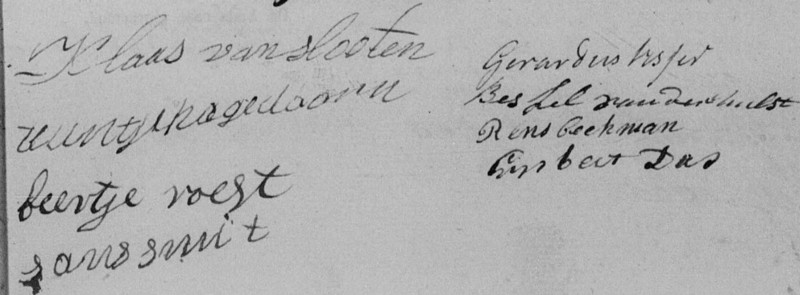 Klaas van slooten
reintje hagedoorn
beertje roest
sans smit
Gerardus
Bessel van der hulst
Rens beekman
Gijsbert Das